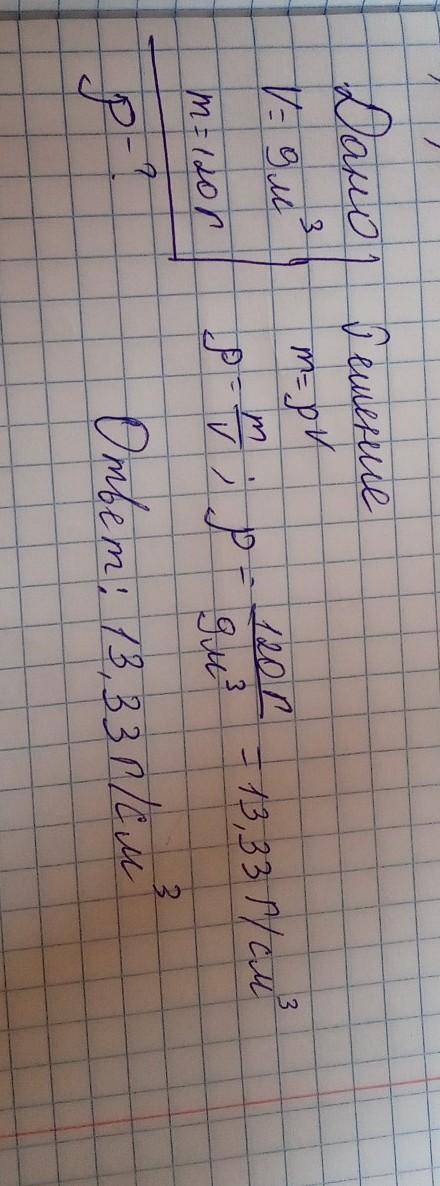 Дано:
V = 9 м³
m = 120 г
ρ - ?
Решение
m = ρV
ρ = m/V ; ρ = 120 г/9 м³ = 13,33 г/см³
Ответ: 13,33 г/см³